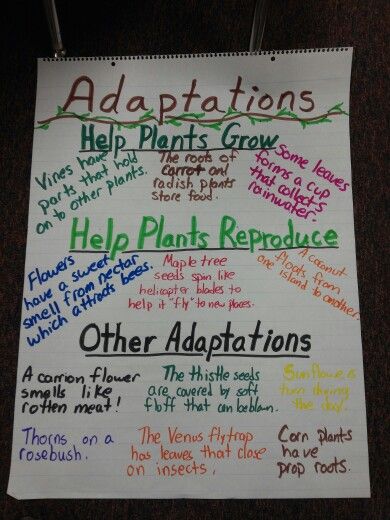 Adaptations
Help Plants Grow
Vines have
parts that hold
on to other plants.
The roots of
carrot and
radish plants
store food.
Some leaves
forms a cup
that collects
rainwater.
Help Plants Reproduce
Flowers
have a sweet
smell from nectar
which attracts bees.
Maple tree
seeds spin like
helicopter blades to
help it "fly" to new places.
A coconut
floats from
one island to another.
Other Adaptations
A carrion flower
smells like
rotten meat!
The thistle seeds
are covered by soft
fluff that can be blown.
Sunflowers
turn during
the day.
Thorns on a
rosebush.
The Venus flytrap
has leaves that close
on insects.
Corn plants
have
prop roots.